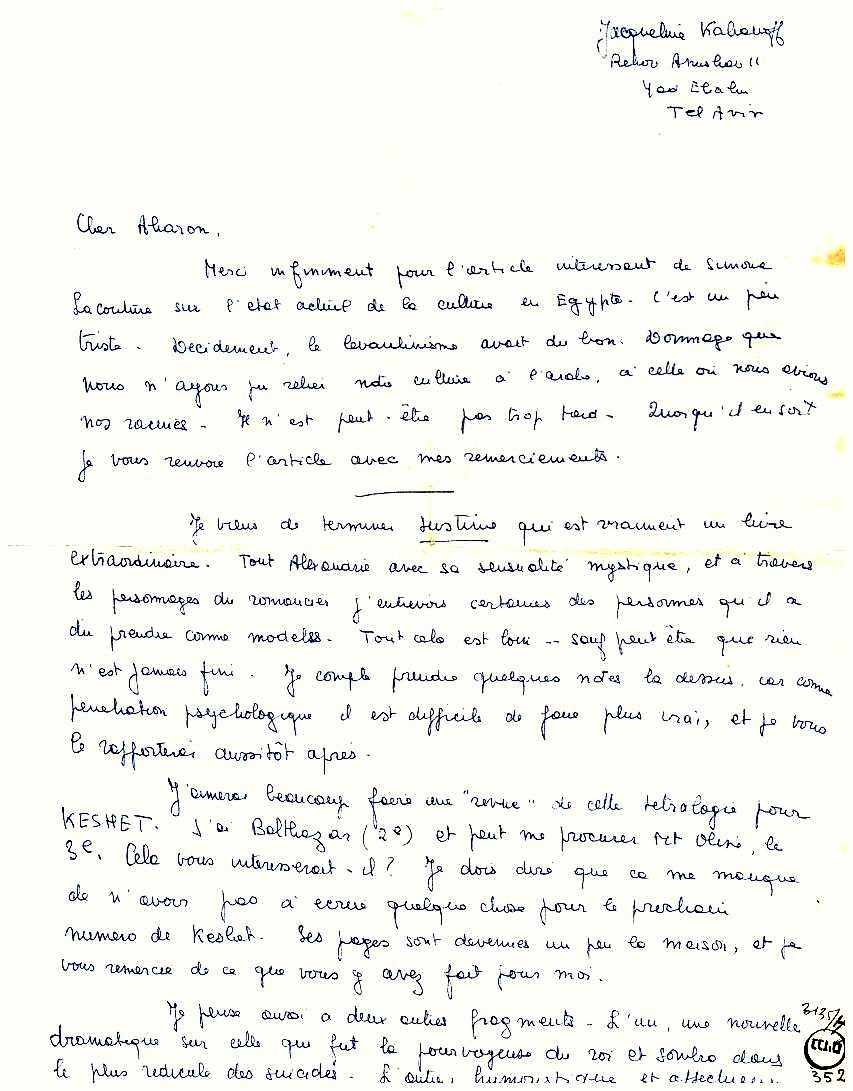 Jacqueline Kahanoff
Rehov Amishav 11
Yad Eliahu
Tel Aviv
Cher Aharon,
Merci infiniment pour l'article interessant de Simone
Lacouture sur l'etat actuel de la culture en Egypte. C'est un peu
triste. Decidement, le levantinisme avait du bon. Dommage que
nous n'ayons pu relier notre culture à l'arabe, à celle où nous avions
nos racines. Il n'est peut-être pas trop tard. Quoiqu'il en soit
je vous renvoie l'article avec mes remerciements.
Je viens de terminer Justine qui est vraiment un livre
extraordinaire. Tout Alexandrie avec sa sensualité mystique, et à travers
les personnages du romancier j'entrevois certaines des personnes qu'il a
du prendre comme modeles. Tout cela est loin -- sauf peut être que rien
n'est jamais fini. Je compte prendre quelques notes la dessus, car comme
penetration psychologique il est difficile de faire plus vrai, et je vous
le rapporterai aussitôt après.
J'aimerai beaucoup faire une "revue" de cette tetralogie pour
KESHET. J'ai Balthazar (2e) et peut me procurer Mt Olive, le
3e. Cela vous interesserait-il? Je dois dire que ca me manque
de n'avoir pas à ecrire quelque chose pour le prochain
numero de Keshet. Ses pages sont devenues un peu la maison, et je
vous remercie de ce que vous y avez fait pour moi.
Je pense aussi a deux autres fragments - L'un, une nouvelle
dramatique sur celle qui fut la pourvoyeuse du roi et sombra dans
le plus redicule des suicides. L'autre, humoristique et affectueuse
352